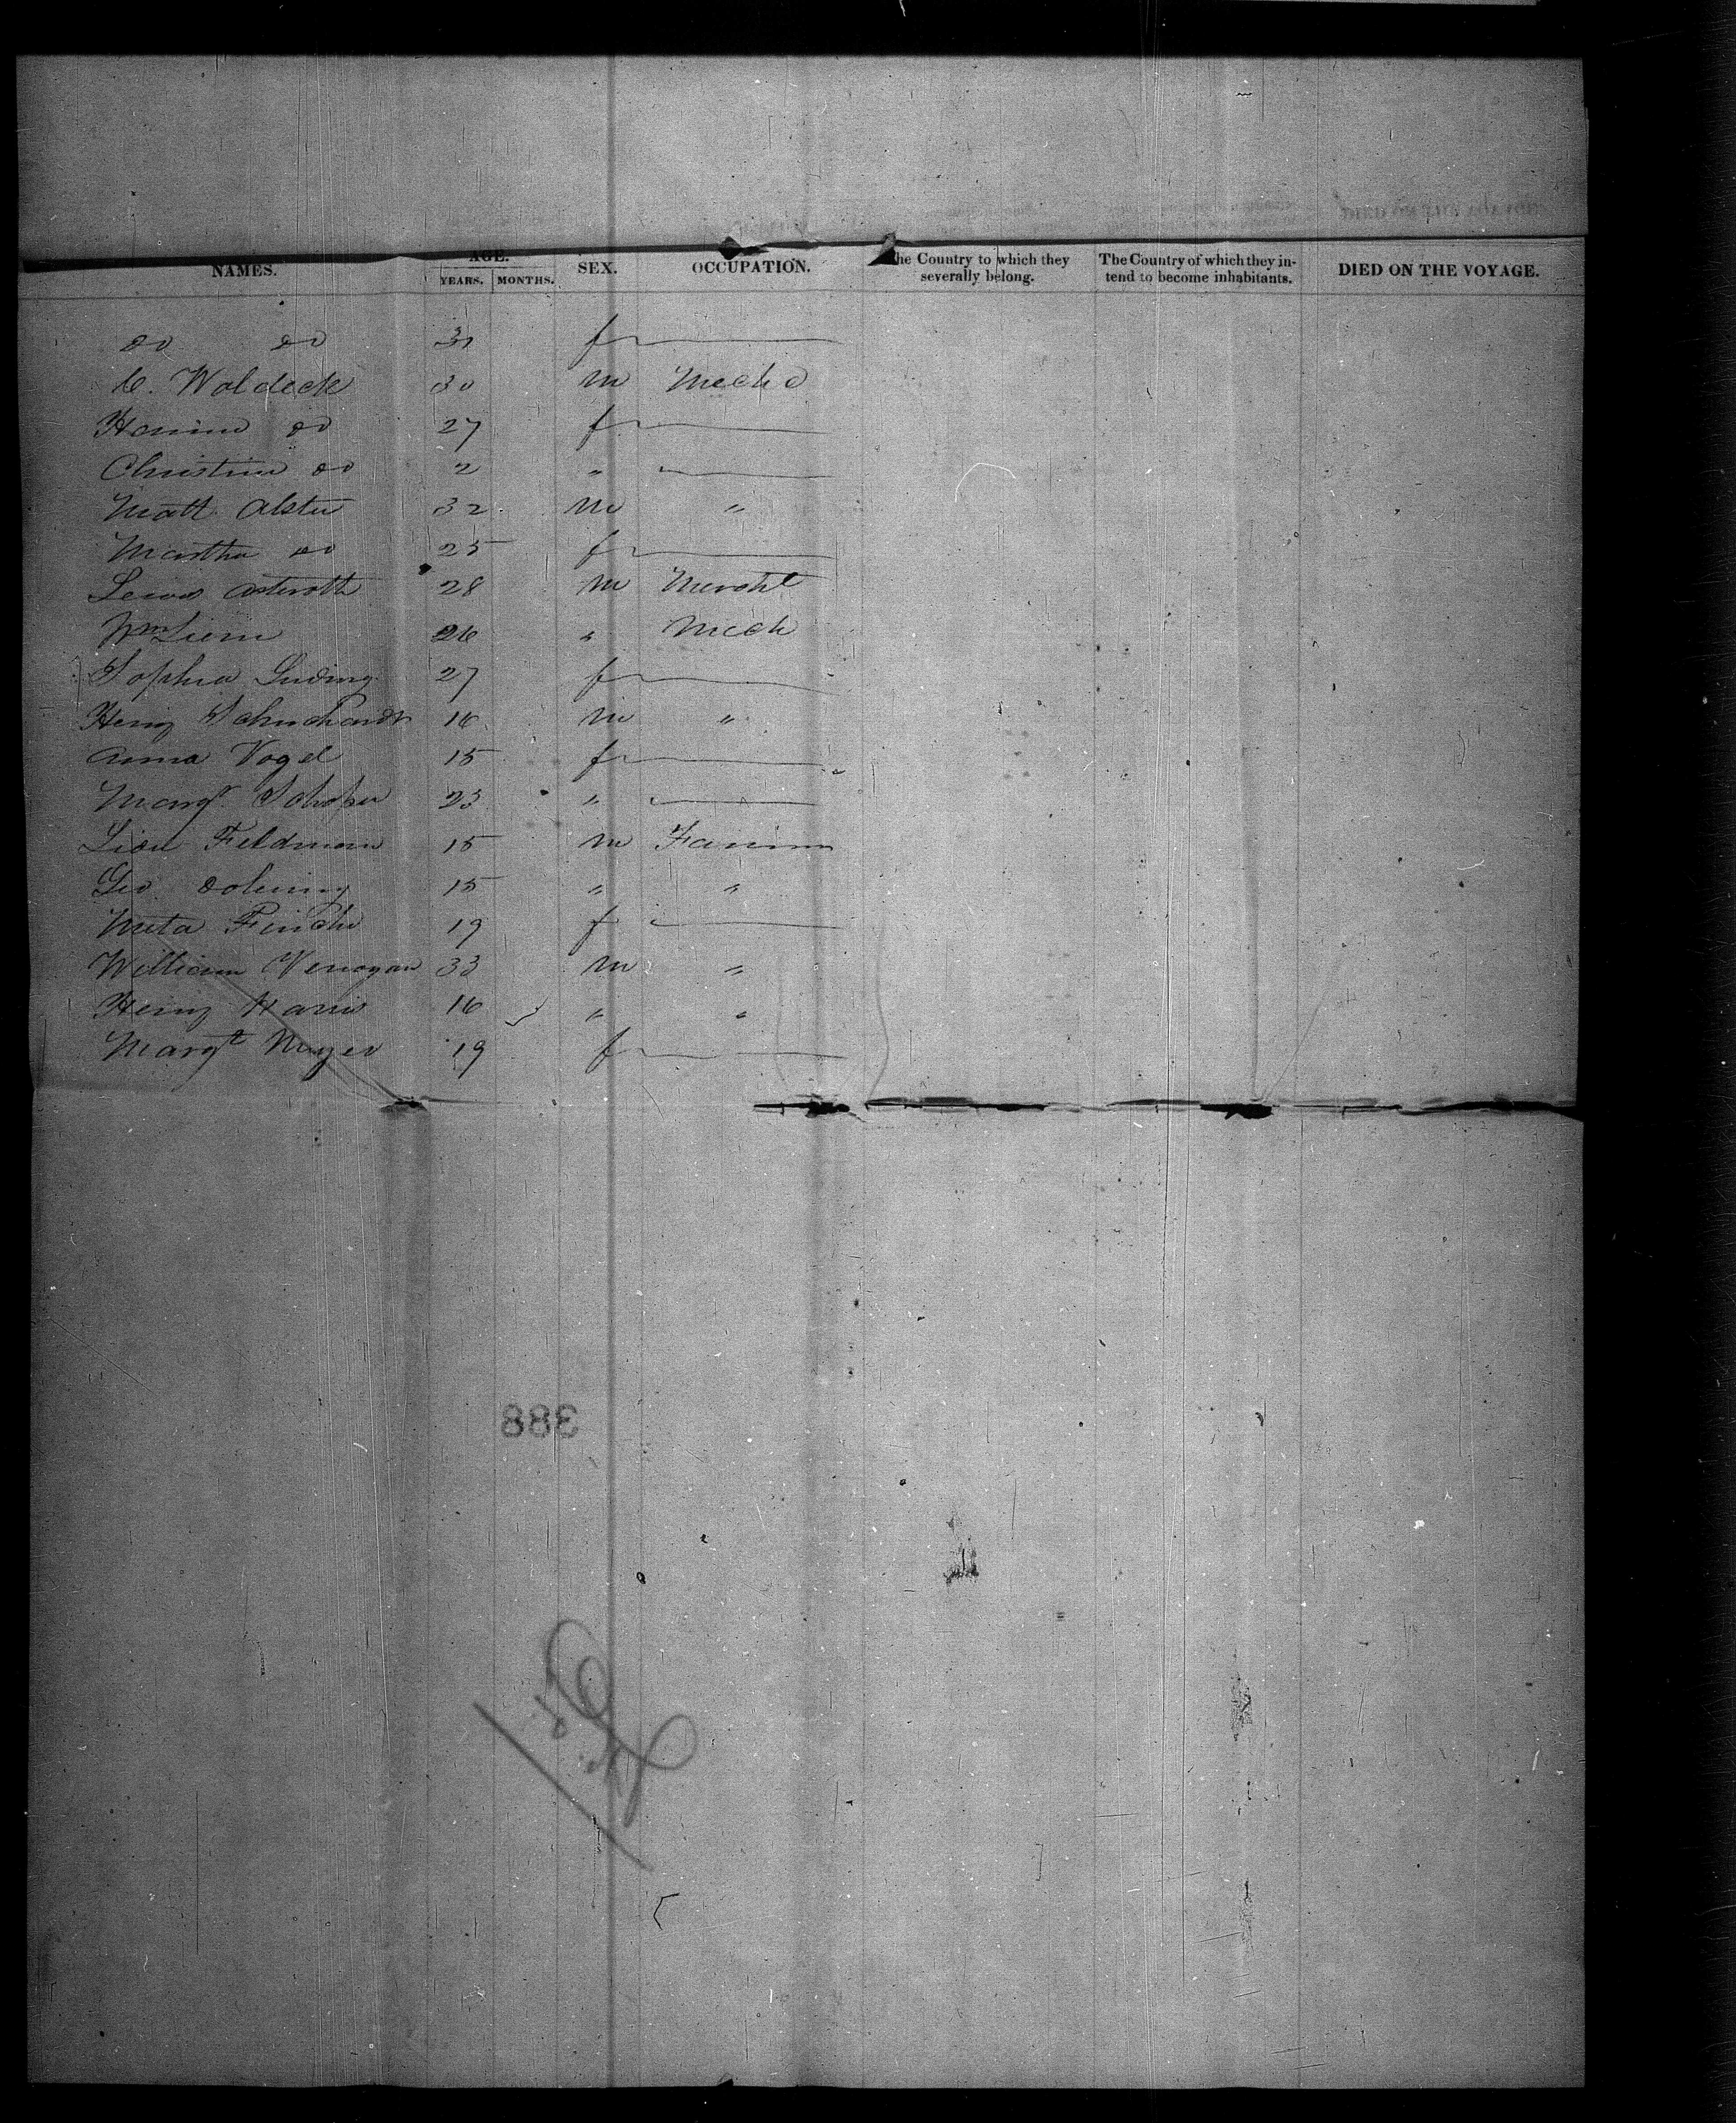 NAMES. AGE. SEX. OCCUPATION. The Country to which they severally belong. The Country of which they intend to become inhabitants. DIED ON THE VOYAGE.
YEARS. MONTHS.
do do 31 f
C. Waldeck 30 m Mech
do 27 f
Christine do 2 "
Matt Alster 32 m "
Martha do 25 f
Lewis Asteroth 28 m Mercht
Wm 26 " Mech
Sophia Ludwig 27 f
Henry Schuchardt 16 m "
Anna Vogel 15 f
Margt Schafer 23 "
Feldmann 15 m Farmer
Geo 15 " "
Meta 19 f
William 33 m "
Henry Harris 16 " "
Margt Meyer 19 f
388